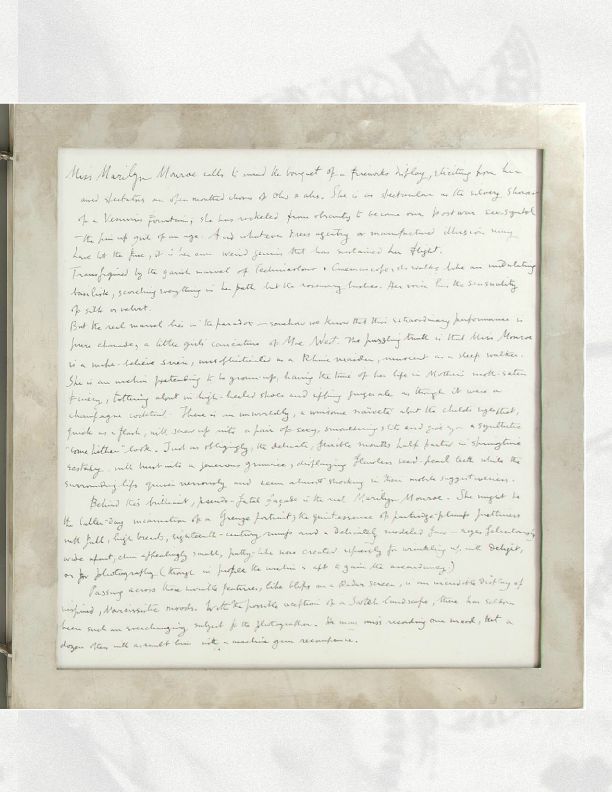 Miss Marilyn Monroe calls to mind the bouquet of a fireworks display, eliciting from her
awed spectators an open mouthed chorus of Ohs & ahs. She is as spectacular as the silvery shower
of a Vesuvius fountain; she has rocketed from obscurity to become our postwar sex symbol
– the pin up girl of an age. And whatever press agentry or manufactured illusion may
have lit the fuse, it is her own weird genius that has sustained her flight.
Transfigured by the garish marvel of Technicolour & Cinemascope, she walks like an undulating
basilisk, scorching everything in her path but the rosemary bushes. Her voice has the sensuality
of silk or velvet.
But the real marvel lies in the paradox – somehow we know that this extraordinary performance is
pure charade, a little girl's caricature of Mae West. The puzzling truth is that Miss Monroe
is a make-believe siren, unsophisticated as a Rhine maiden, innocent as a sleep walker.
She is an urchin pretending to be grown up, having the time of her life in Mother's moth-eaten
finery, tottering about in high-heeled shoes and sipping gingerale as though it were a
champagne cocktail. There is an unworldly, a winsome naïveté about the child's eyes
quick as a flash, will screw up into a pair of sexy, smouldering slits and give you a synthetic
"come hither" look. Just as obligingly, the delicate, flexible mouth's half parted in springtime
ecstasy, will burst into a generous grimace, displaying flawless seed-pearl teeth while the
surrounding lips quiver nervously and seem almost shocking in their mobile suggestiveness.
Behind this brilliant, pseudo-fatal façade is the real Marilyn Monroe. She might be
the latter-day incarnation of a Greuze portrait, the quintessence of partridge-plump prettiness
with full, high breasts, eighteenth-century rump and a delicately modeled face – eyes felicitously
wide apart, chin appealingly small, putty-like nose created expressly for wrinkling up with delight,
or for photography. (though in profile the urchin is apt to gain the ascendancy)
Passing across these mobile features, like blips on a Radar screen, is an incredible display of
inspired, Narcissistic moods. With the possible exception of a Scotch landscape, there has seldom
been such an everchanging subject for the photographer. He may miss recording one mood, but a
dozen others will assault him with a machine gun recompense.